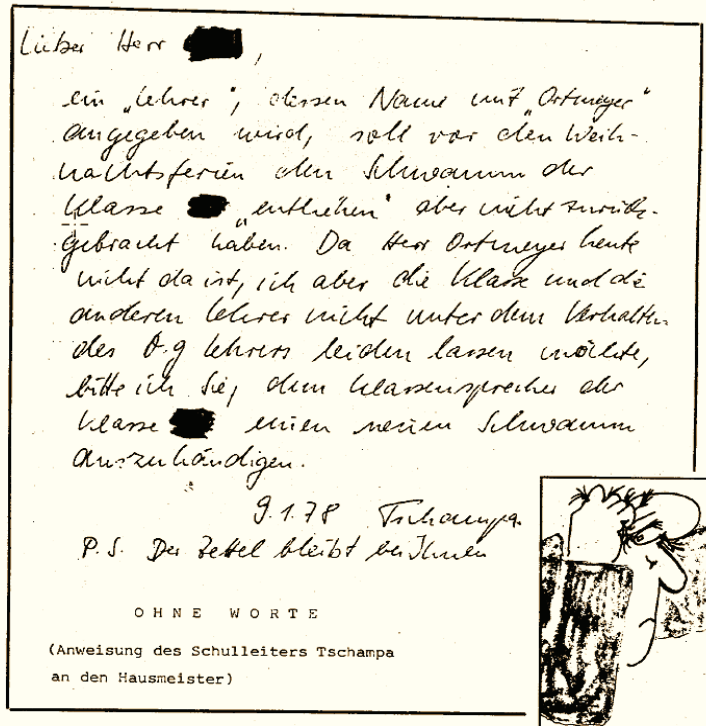 Lieber Herr
ein „Lehrer“, dessen Name mit „Ortmeyer“
angegeben wird, soll vor den Weih-
nachtsferien den Schwamm der
Klasse „entliehen“ aber nicht zurück-
gebracht haben. Da Herr Ortmeyer heute
nicht da ist, ich aber die Klasse und die
anderen Lehrer nicht unter dem Verhalten
des O.g Lehrers leiden lassen möchte,
bitte ich Sie, dem Klassensprecher der
Klasse einen neuen Schwamm
auszuhändigen.
9.1.78 Tschampa
P.S. Der Zettel bleibt bei Ihnen
OHNE WORTE
(Anweisung des Schulleiters Tschampa
an den Hausmeister)